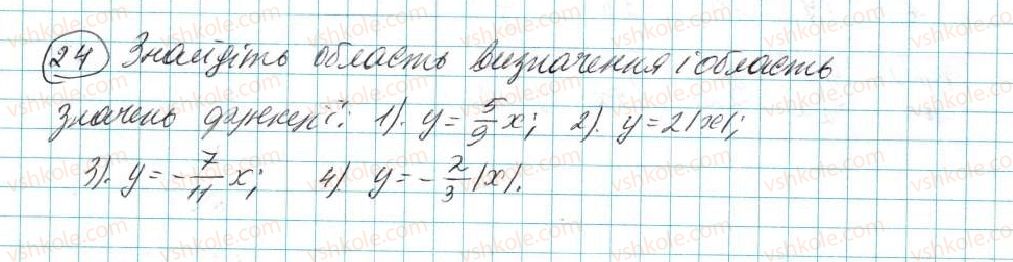 24 Знайдіть область визначення і область
значень функції: 1). y = 5/9 x; 2). y = 2|x|;
3). y = -7/11 x; 4). y = -2/3 |x|.